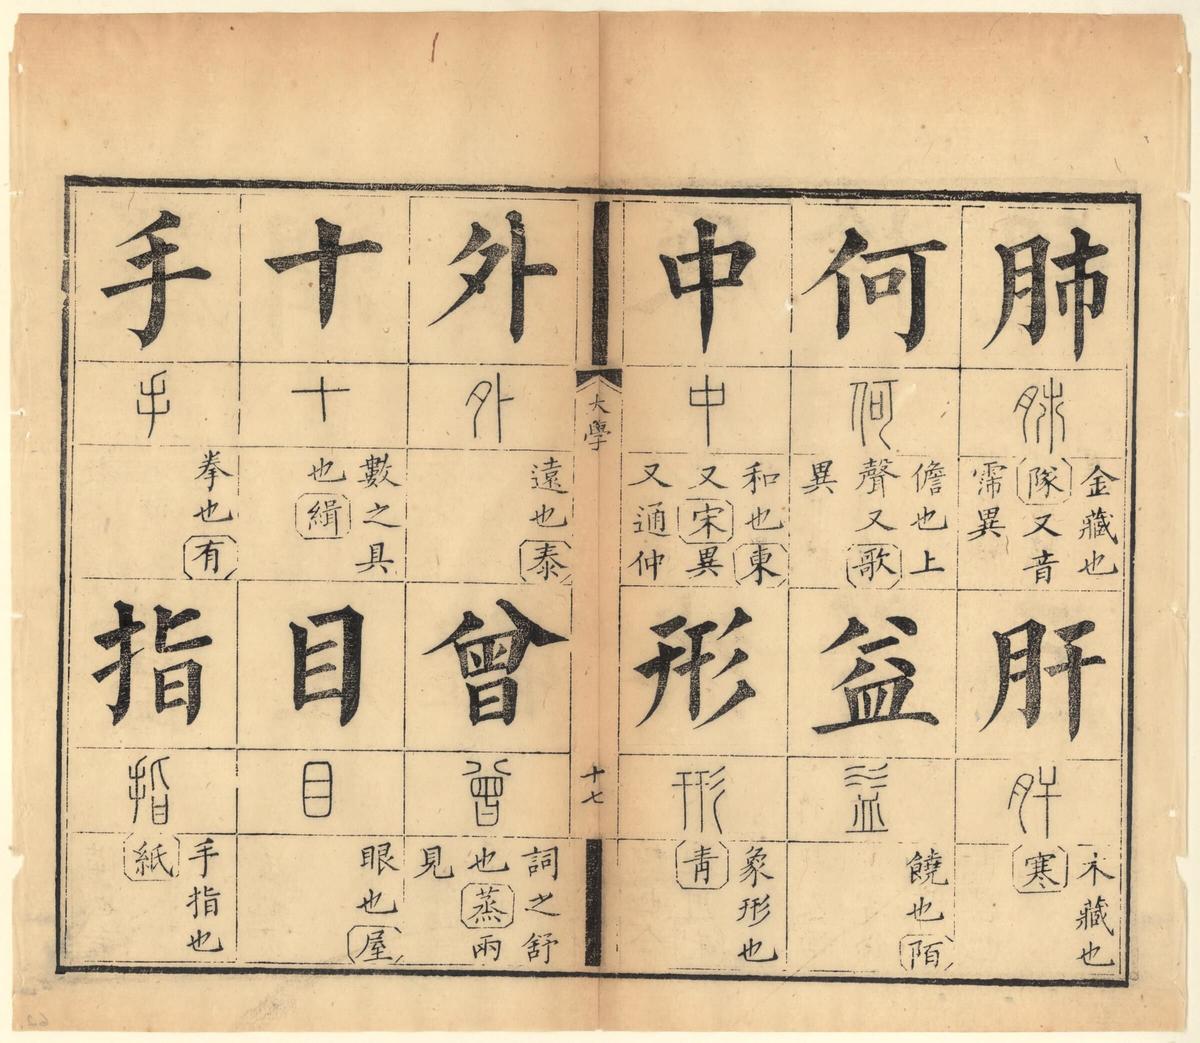 肺
肺
金藏也
隊又音
霈異
肝
肝
木藏也
寒
何
何
儋也上
聲又歌
異
益
益
饒也陌
中
中
和也東
又宋異
又通仲
形
形
象形也
青
大學
十七
外
外
遠也泰
曾
曾
詞之舒
也蒸兩
見
十
十
數之具
也緝
目
目
眼也屋
手
手
拳也有
指
指
手指也
紙